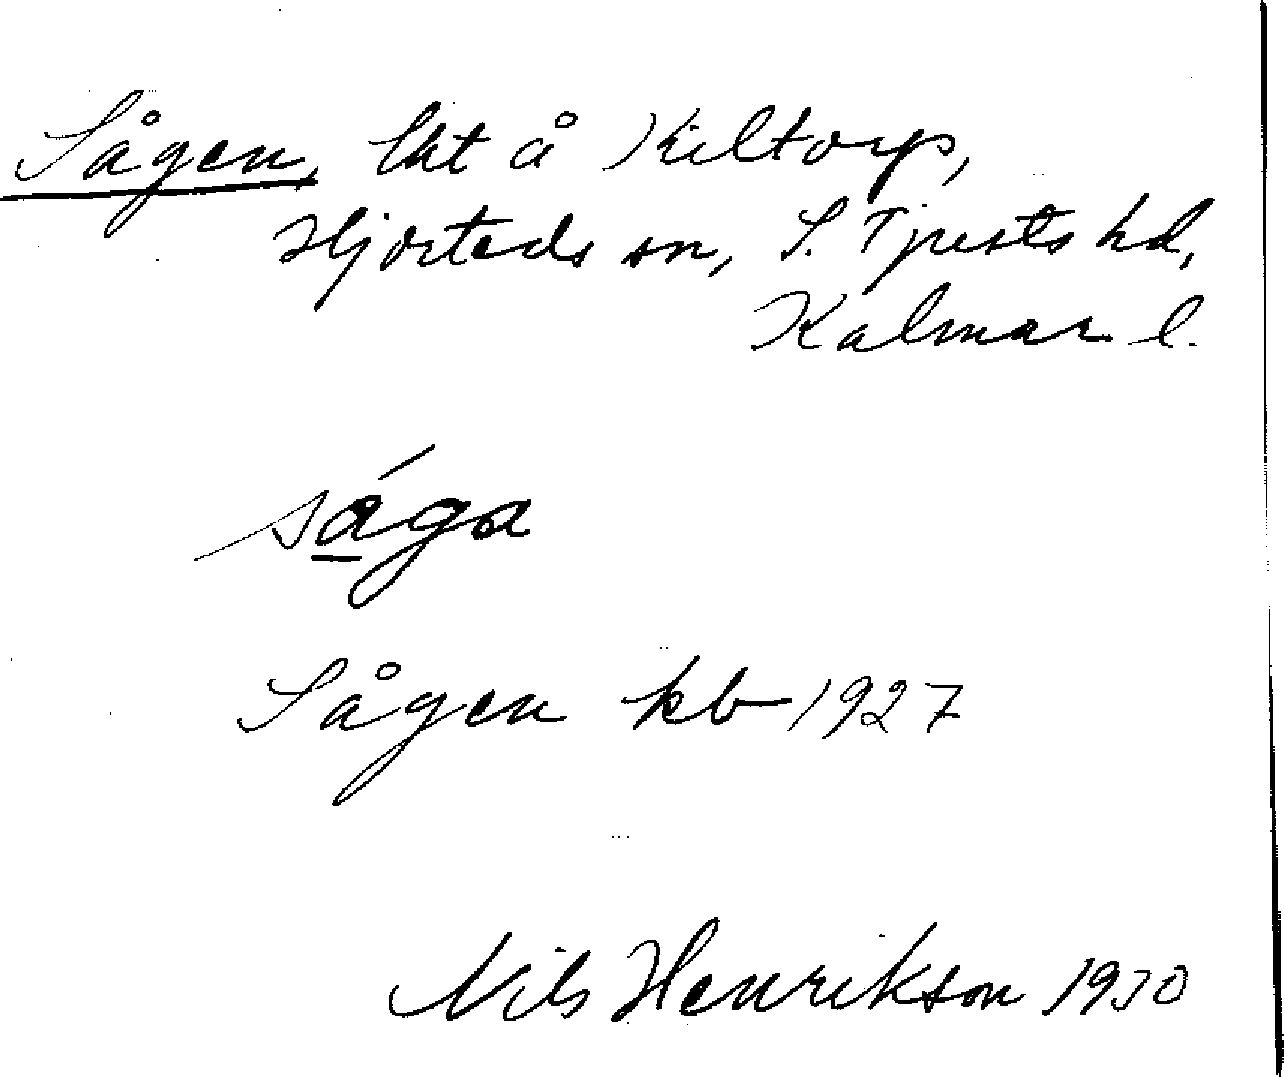 Sågen, lht å Kiltorp,
Hjorteds sn, S. Tjusts hd,
Kalmar l.
sága
Sågen kb 1927
Nils Henrikson 1930